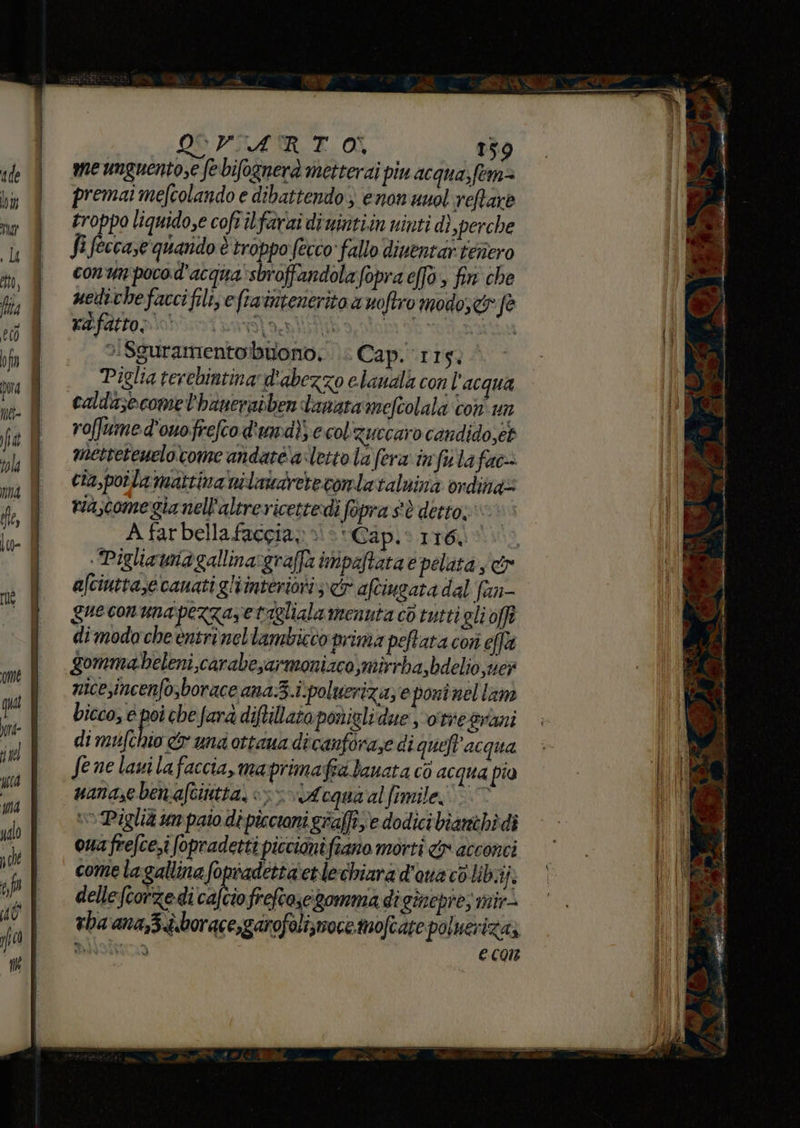 QVARTO. 159
me unguento,e se bisognerà metterai piu acqua,sem-
premai mescolando e dibattendo, e non uuol restare
troppo liquido,e cosi il farai di uinti in uinti dì,perche
si secca,e quando è troppo secco fallo diuentar tenero
con un poco d'acqua sbroffandola sopra esso, fin che
uedi che facci fili, e sia intenerito a uostro modo,& se
rà fatto.
Sguramento buono. Cap. 115.
Piglia terebintina d'abezzo e lauala con l'acqua
calda,e come l'hauerai ben lauata mescolala con un
rossume d'ouo fresco d'un dì, e col zuccaro candido,et
metteteuelo come andate a letto la sera in su la fac-
cia,poi la mattina ui lauarete con la taluina ordina-
ria,come gia nell'altre ricette di sopra s'è detto.
A far bella faccia. Cap. 116.
Piglia una gallina grassa impastata e pelata, &
asciutta,e cauati gli interiori, & asciugata dal san-
gue con una pezza,e tagliala menuta cō tutti gli ossi
di modo che entri nel lambicco prima pestata con essa
gomma heleni,carabe,armoniaco,mirrha,bdelio,uer
nice,incenso,borace ana.3.i.polueriza, e poni nel lam
bicco, e poi che sarà distillato ponigli due, o tre grani
di muschio & una ottaua di canfora,e di quest'acqua
se ne laui la faccia, ma prima sia lauata cō acqua pio
uana,e ben asciutta. Acqua al simile.
Piglia un paio di piccioni grassi, e dodici bianchi di
oua fresce,i sopradetti piccioni siano morti & acconci
come la gallina sopradetta et le chiara d'oua cō lib.ij.
delle scorze di cascio fresco,e gomma di ginepre, mir-
rha ana,3.i.borace,garofoli,noce moscate polueriza,
e con